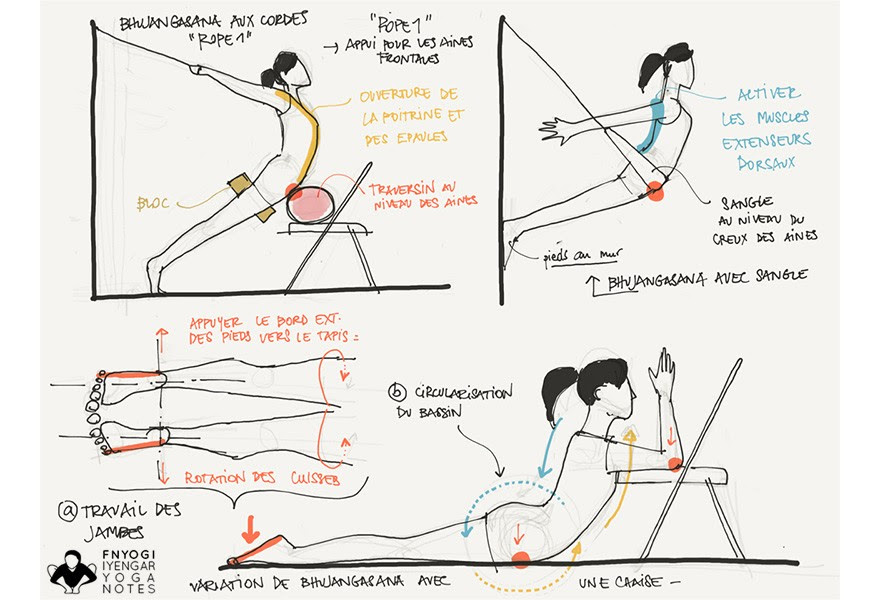 BHUJANGASANA AUX CORDES
"ROPE 1"
"ROPE 1"
→ APPUI POUR LES AINES
FRONTALES
OUVERTURE DE
LA POITRINE ET
DES EPAULES
BLOC
TRAVERSIN AU
NIVEAU DES AINES
ACTIVER
LES MUSCLES
EXTENSEURS
DORSAUX
SANGLE
AU NIVEAU DU
CREUX DES AINES
pieds au mur
BHUJANGASANA AVEC SANGLE
APPUYER LE BORD EXT.
DES PIEDS VERS LE TAPIS =
ROTATION DES CUISSES
ⓐ TRAVAIL DES
JAMBES
ⓑ CIRCULARISATION
DU BASSIN
FNYOGI
IYENGAR
YOGA
NOTES
VARIATION DE BHUJANGASANA AVEC UNE CHAISE –